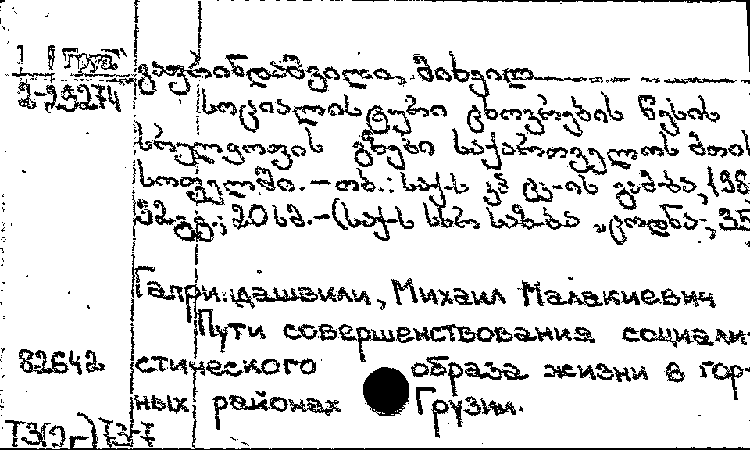 გაფრინდაშვილი, მიხეილ
2-29274
სოციალისტური ცხოვრების წესის
სრულყოფის გზები საქართველოს მთის
სოფელში.–თბ.: საქ-ს კპ ცკ-ის გამ-ბა, 198
32 გვ.; 20 სმ.–(საქ-ს სსრ საზ-ბა „ცოდნა“, 35
Гаприндашвили, Михаил Малакиевич
Пути совершенствования социали-
82642 стического образа жизни в гор-
ных районах Грузии.